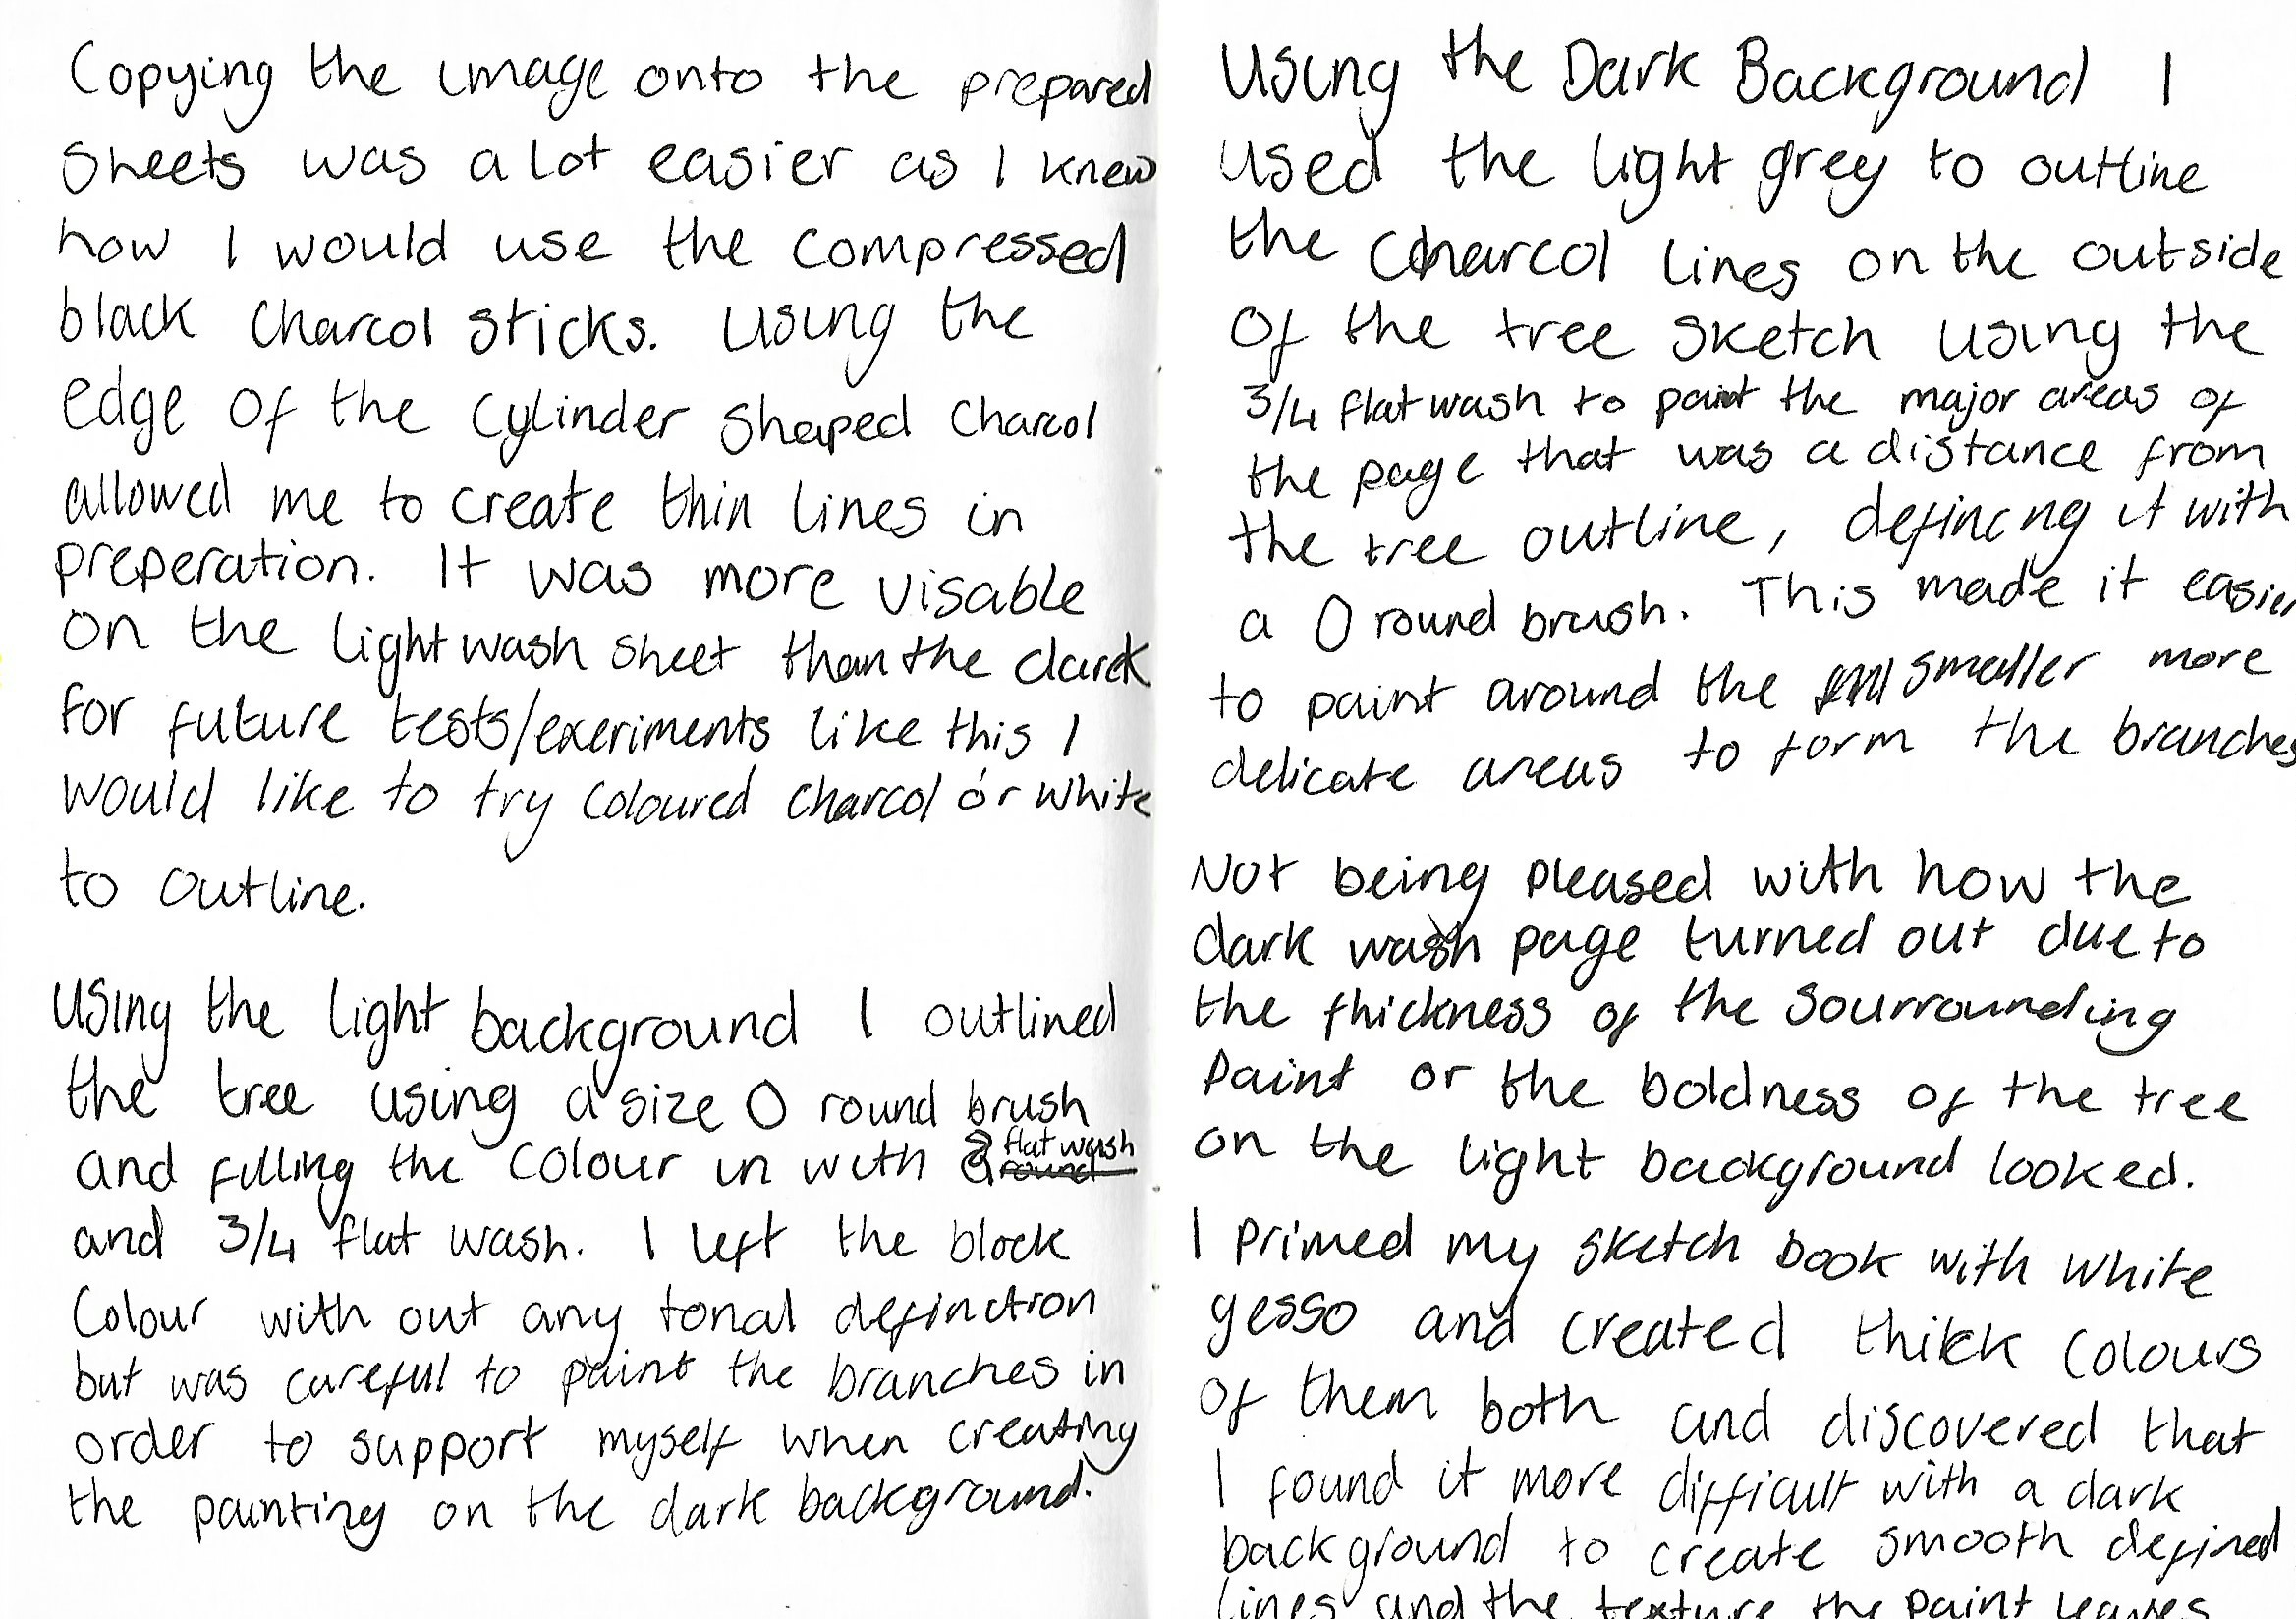 Copying the image onto the prepared
sheets was a lot easier as I knew
how I would use the compressed
black charcol sticks. Using the
edge of the cylinder shaped charcol
allowed me to create thin lines in
preperation. It was more visable
on the light wash sheet than the dark
for future tests/exeriments like this I
would like to try coloured charcol or white
to outline.
Using the light background I outlined
the tree using a size 0 round brush
and filling the colour in with 2 flat wash
and 3/4 flat wash. I left the block
colour with out any tonal definction
but was careful to paint the branches in
order to support myself when creating
the painting on the dark background.
Using the Dark Background I
used the light grey to outline
the charcol lines on the outside
of the tree sketch using the
3/4 flat wash to paint the major areas of
the page that was a distance from
the tree outline, defining it with
a 0 round brush. This made it easier
to paint around the smaller more
delicate areas to form the branches
Not being pleased with how the
dark wash page turned out due to
the thickness of the sourrounding
paint or the boldness of the tree
on the light background looked.
I primed my sketch book with white
gesso and created thick colours
of them both and discovered that
I found it more difficult with a dark
background to create smooth defined
lines and the texture the paint leaves